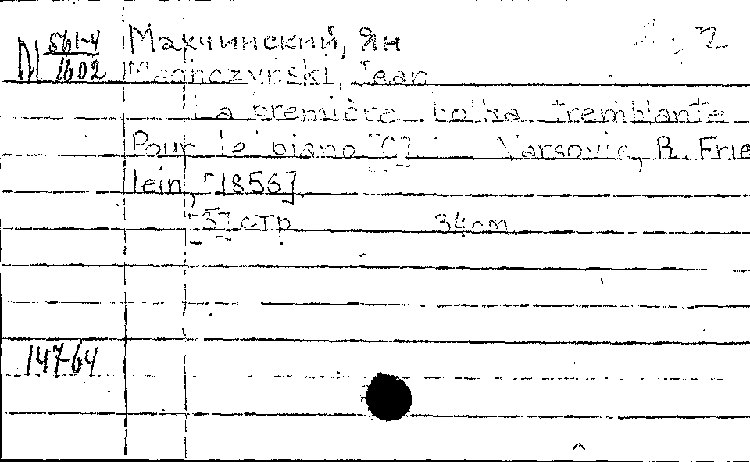 М 561-4 Макчинский, Ян
1602 Mąnczyński, Jean
La première Polka tremblante
Pour le piano [C] — Varsovie, R. Frie
lein, [1856]
[5] стр 34 cm
147-64